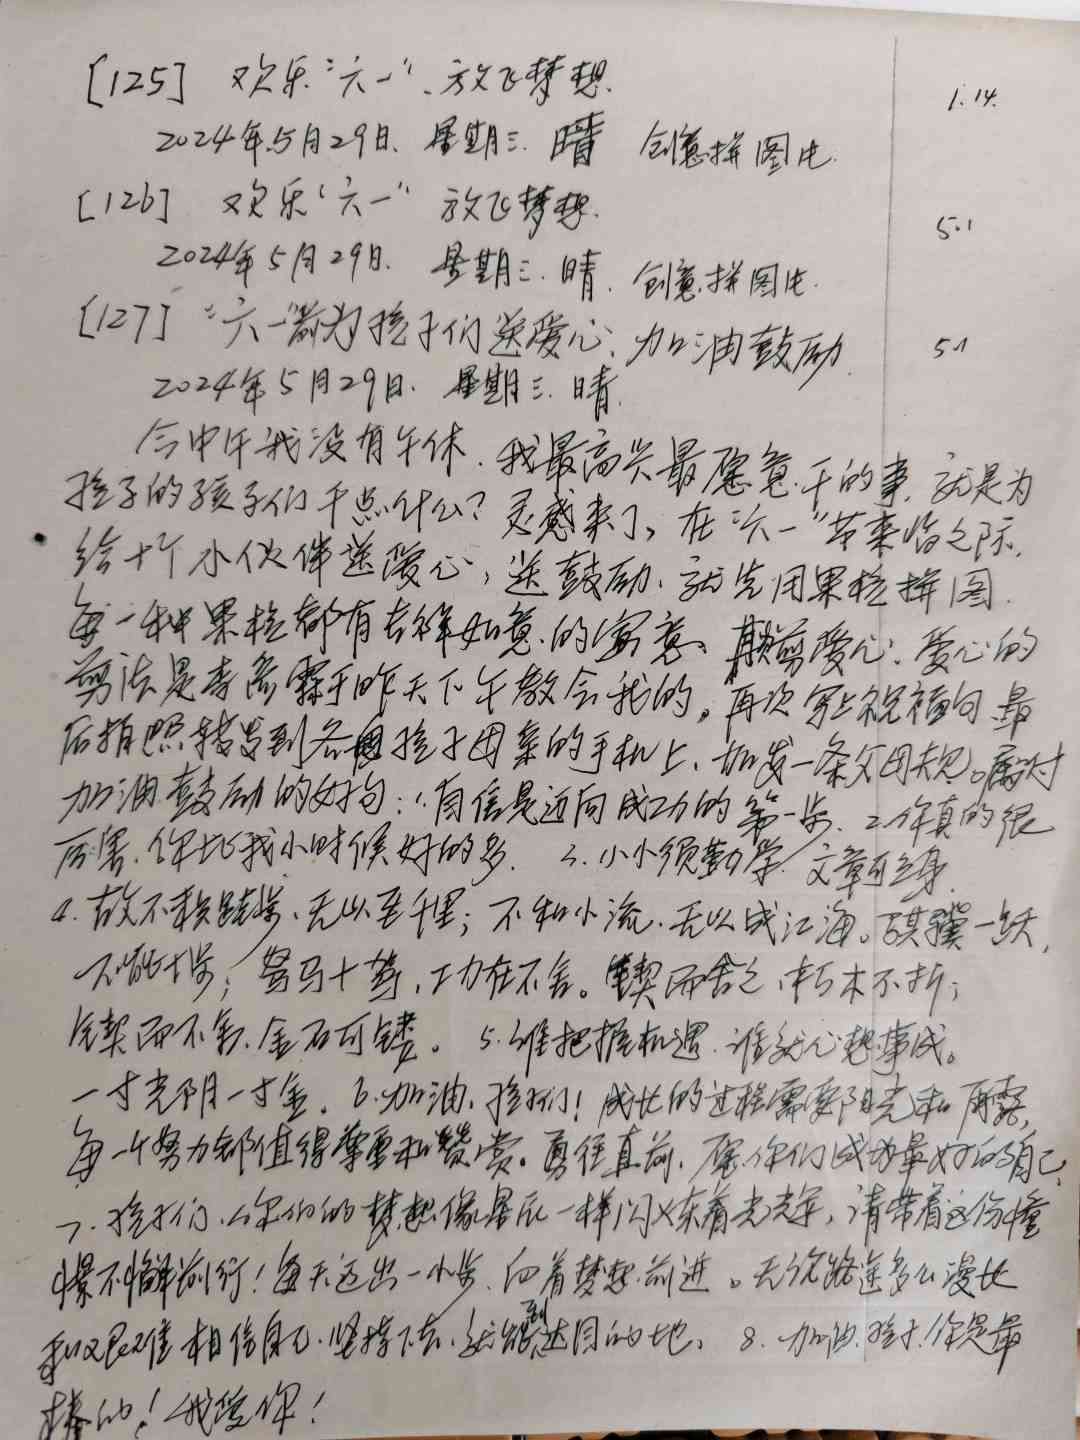 [125] 欢乐"六一"、放飞梦想. 1.14.
2024年5月29日. 星期三. 晴 创意拼图片.
[126] 欢乐"六一" 放飞梦想. 5.1
2024年5月29日. 星期三. 晴. 创意拼图片.
[127] "六一"前为孩子们送爱心、加油鼓励. 5.1
2024年5月29日. 星期三. 晴.
今中午我没有午休. 我最高兴最愿意干的事. 就是为
孩子的孩子们干点什么? 灵感来了, 在"六一"节来临之际.
给十个小伙伴送爱心, 送鼓励. 就先用果粒拼图.
每一种果粒都有吉祥如意的寓意、剪爱心. 爱心的
剪法是李 霖于昨天下午教会我的。再次写上祝福句 最
后拍照转发到各自孩子母亲的手机上. 加发一条父母寄对
加油鼓励的好句: 1. 自信是迈向成功的第一步. 2. 你真的很
厉害. 你比我小时候好的多. 3. 小小须勤学 文章可立身.
4. 故不积跬步、无以至千里; 不积小流. 无以成江海。骐骥一跃,
不能十步; 驽马十驾, 功在不舍。锲而舍之, 朽木不折;
锲而不舍. 金石可镂。 5. 谁把握机遇. 谁就心想事成。
一寸光阴一寸金。 6. 加油, 孩子们! 成长的过程需要阳光和雨露,
每一个努力都值得尊重和赞赏。勇往直前. 愿你们成为最好的自己.
7. 孩子们, 你们的梦想像星辰一样闪烁着光芒, 请带着这份憧
憬不懈前行! 每天迈出一小步. 向着梦想前进。无论路途多么漫长
和艰难 相信自己. 坚持下去. 就能到达目的地. 8. 加油. 孩子. 你是最
棒的! 我爱你!